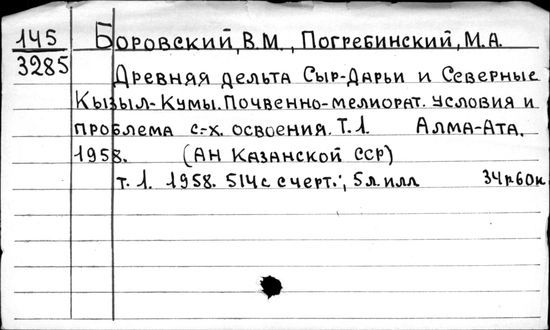 145 Боровский, В.М., Погребинский, М.А.
3285 Древняя дельта Сыр-Дарьи и Северные
Кызыл-Кумы. Почвенно-мелиорат. условия и
проблема с-х. освоения. Т.1. Алма-Ата,
1958. (АН Казанской ССР)
т. 1. 1958. 514с с черт.; 5 л. илл 34р60к